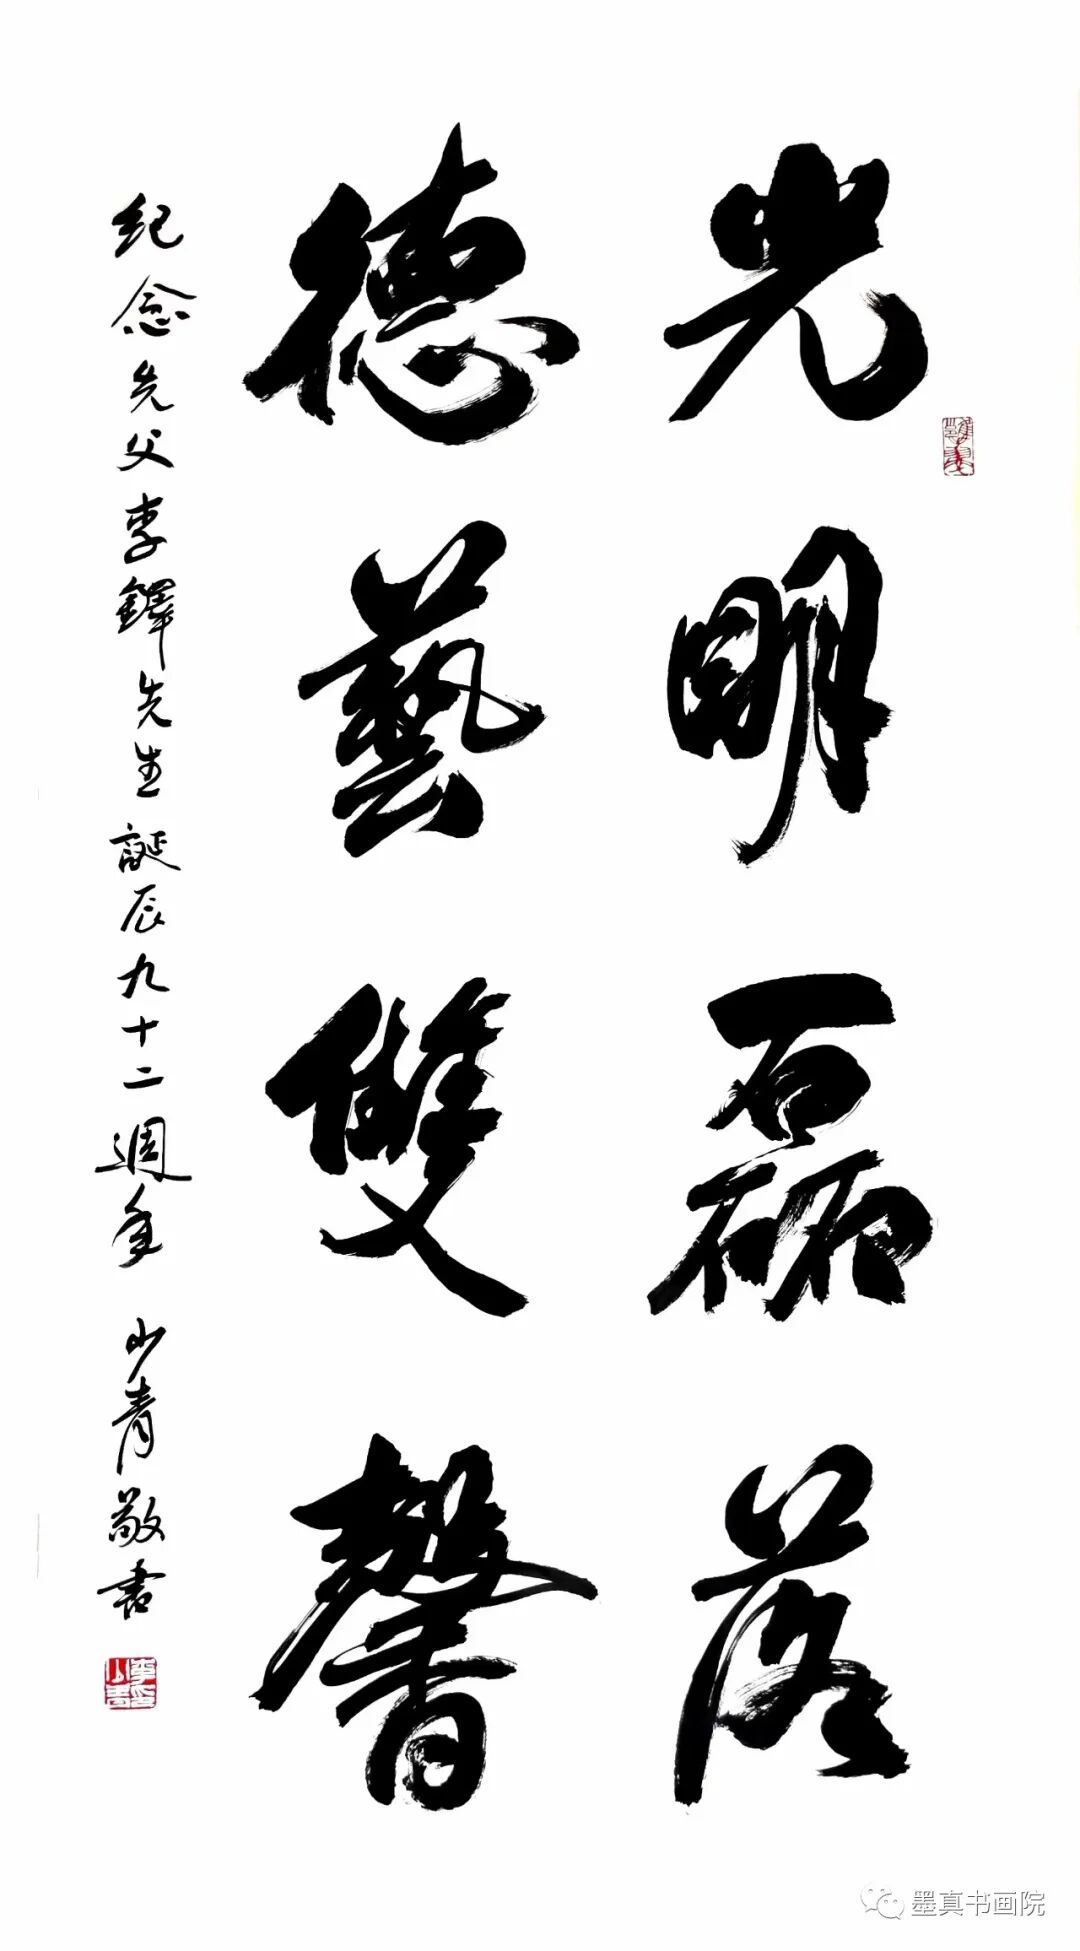 光明磊落
德藝雙馨
纪念先父李鐸先生誕辰九十二週年 山青敬書
墨真书画院